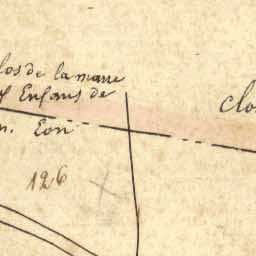 los de la mare
Enfans de
clo
n. Eon
126